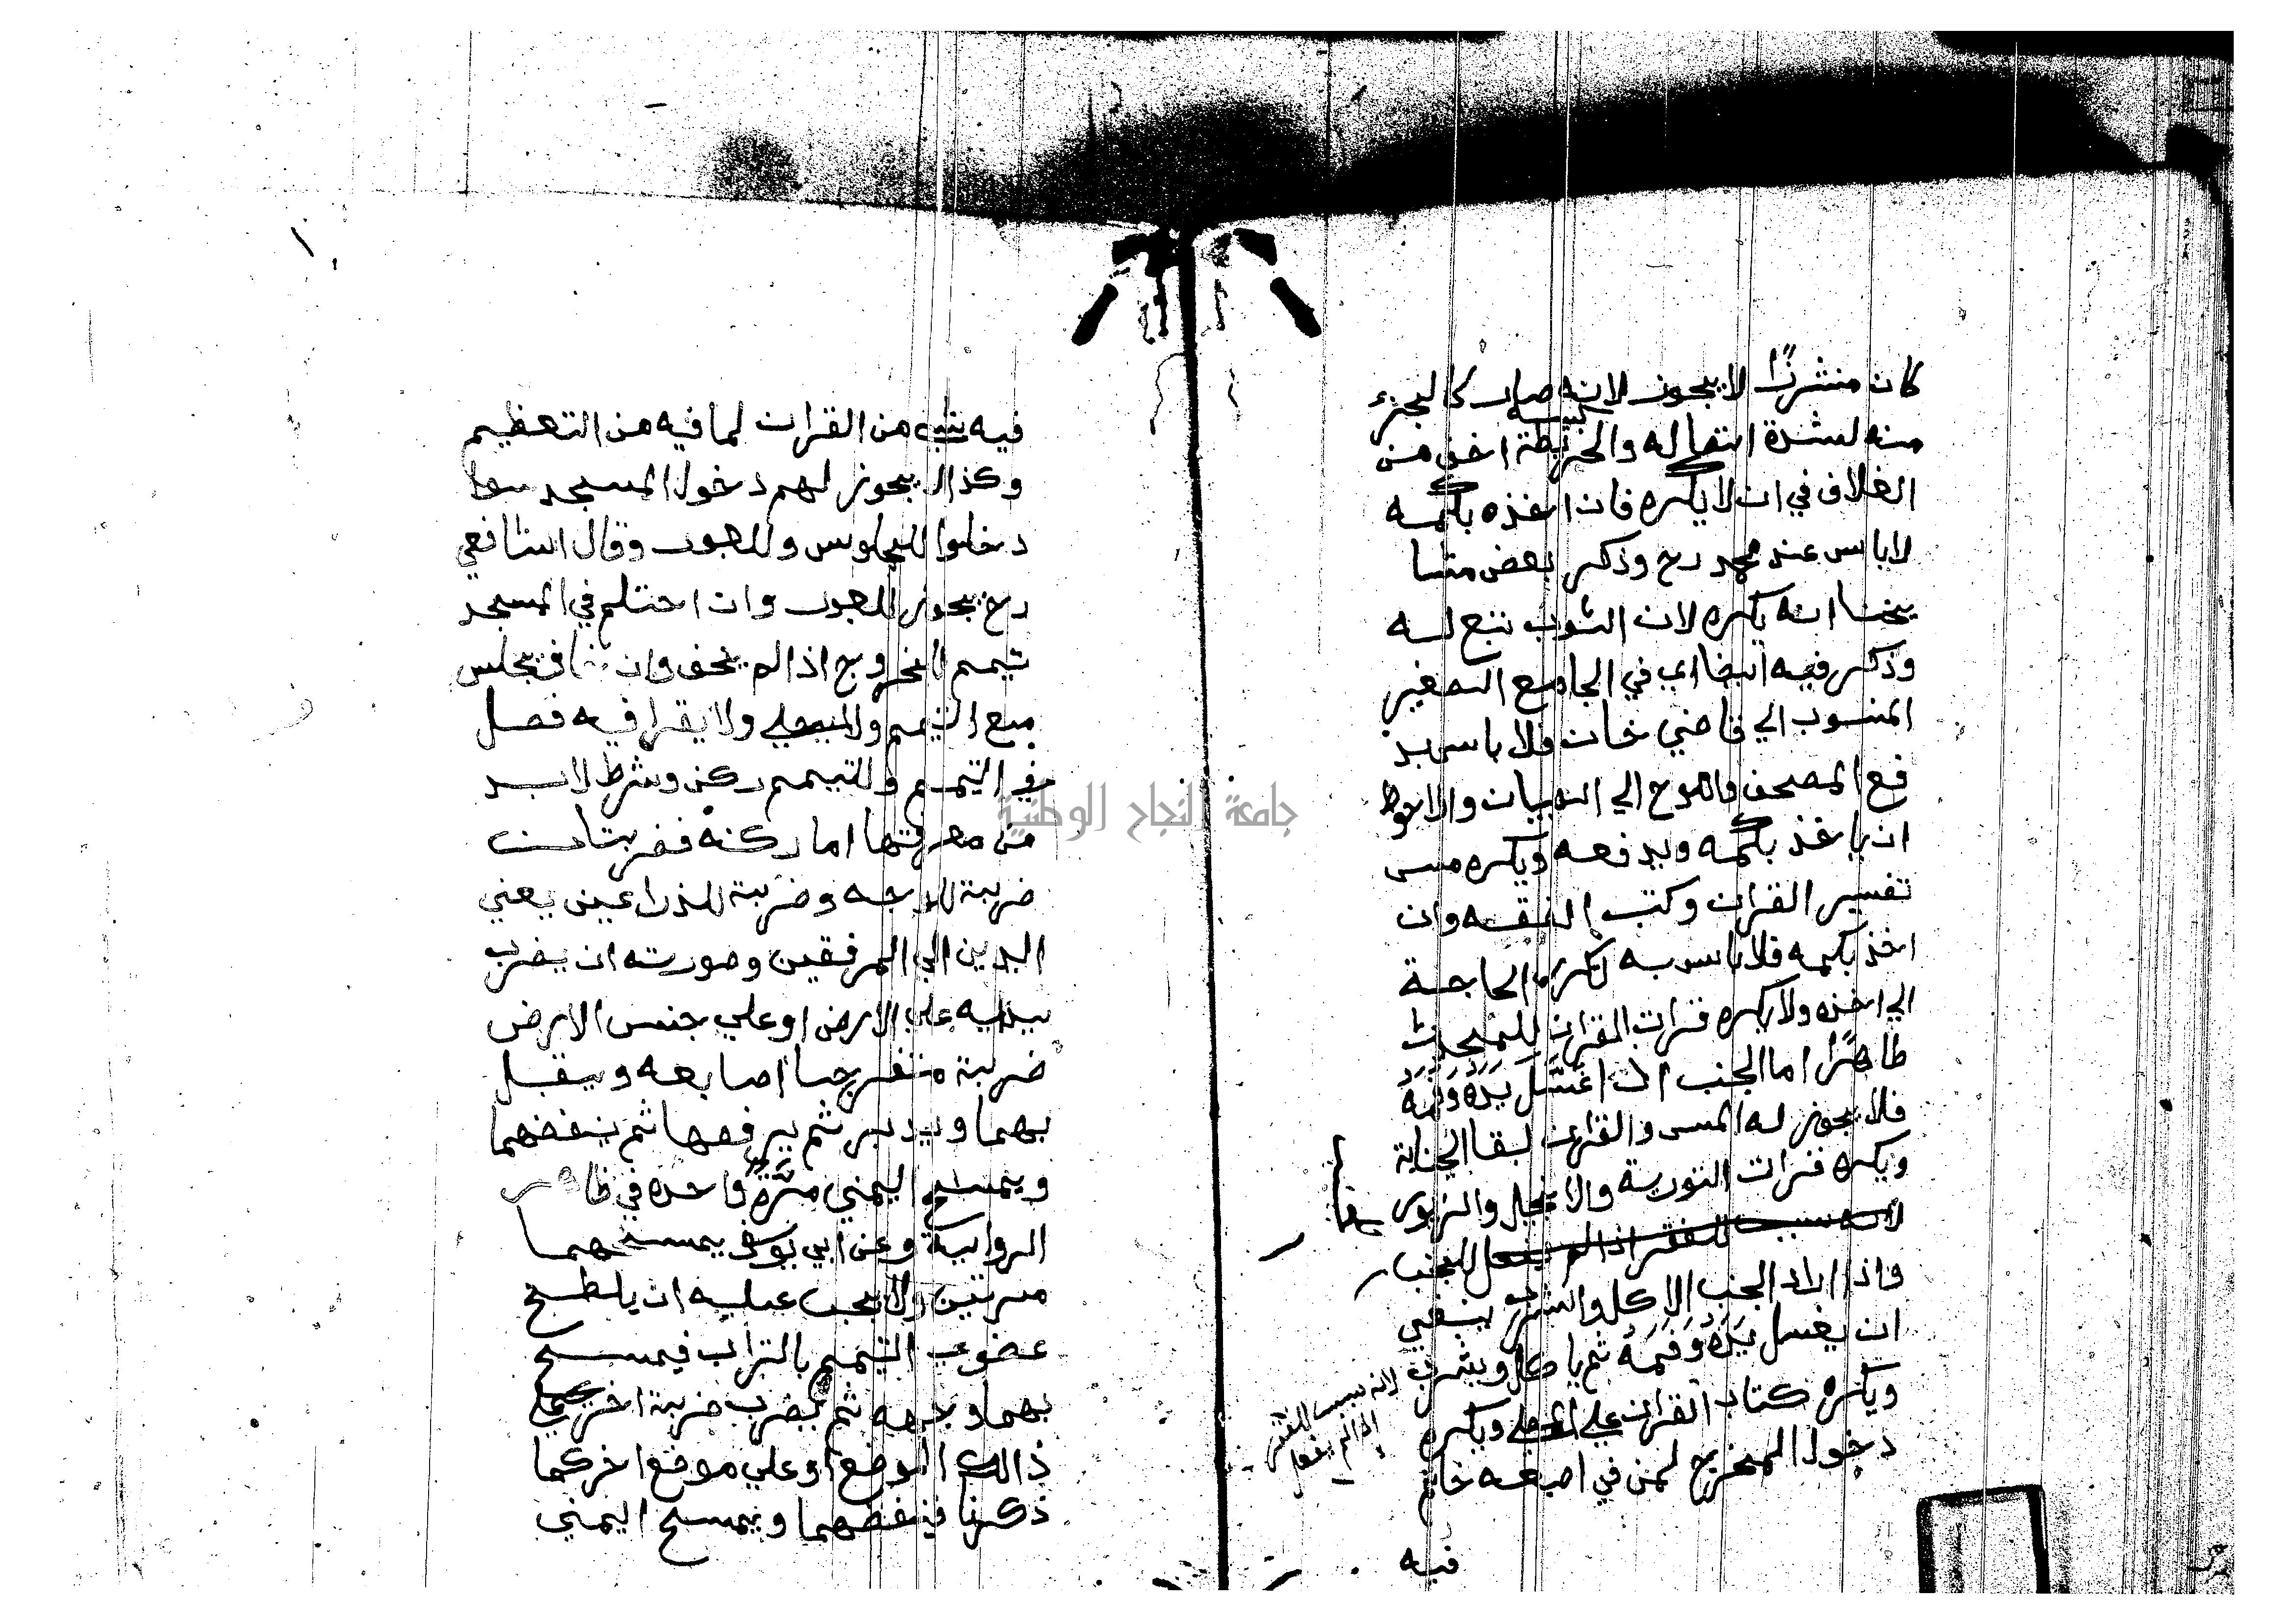 كان منشرزًا لا يجوز لانه صار كالجزء
منه لشدة اتصاله والخريطة اخف من
الغلاف في ان لا يكره فان اخذه بكمه
لا باس عند محمد رح وذكر بعض مشا
يخنا انه يكره لان الثوب تبع له
وذكر فيه ايضا اي في الجامع الصغير
المنسوب الي قاضي خان فلا باس بد
فع المصحف واللوح الي الصبيان والاحوط
ان ياخذ بكمه ويدفعه ويكره مس
تفسير القران وكتب الفقه وان
اخذ بكمه فلا باس به لكثرة الحاجة
الي اخذه ولا يكره قرات القران للمحدث
ظاهرًا اما الجنب اذا اغتسل يَدَهُ وَفَمَهُ
فلا يجوز له المس والقران لبقا الجنابة
ويكره قرات التورية والانجيل والزبور
لانه سبب الفقر اذا لم يفعل للجنب
واذا اراد الجنب الاكل والشرب ينبغي
ان يغسل يَدَهُ وَفَمَهُ ثم ياكل ويشرب
لانه سبب للفقر
اذا لم يفعل
ويكره كتاب القران علي المصلي ويكره
دخول المخرج لمن في اصبعه خاتم
فيه
فيه شي من القران لما فيه من التعظيم
وكذا لا يجوز لهم دخول المسجد سوا
دخلوا للجلوس وللعبور وقال الشافعي
رح يجوز للعبور وان احتلم في المسجد
تيمم للخروج اذا لم يخف وان خاف يجلس
مع التيمم ولا يصلي ولا يقرا فيه فصل
في التيمم وللتيمم ركن وشرط لا بد
من معرفتها اما ركنه فضربتان
ضربة للوجه وضربة للذراعين يعني
اليدين الي المرفقين وصورته ان يضرب
بيديه علي الارض او علي جنس الارض
ضربة منفرجا اصابعه ويقبل
بهما ويدبر ثم يرفعها ثم ينفضهما
ويمسح اليمني مَرَّةً واحدة في ظا
الرواية وعن ابي يوسف يمسحهما
مرتين ولا يجب عليه ان يلطخ
عضوي التيمم بالتراب فيمسح
بهما وجهه ثم يضرب ضربة اخري علي
ذالك الموضع او علي موضع اخر كما
ذكرنا فينفضهما ويمسح اليمني
جامعة النجاح الوطنية